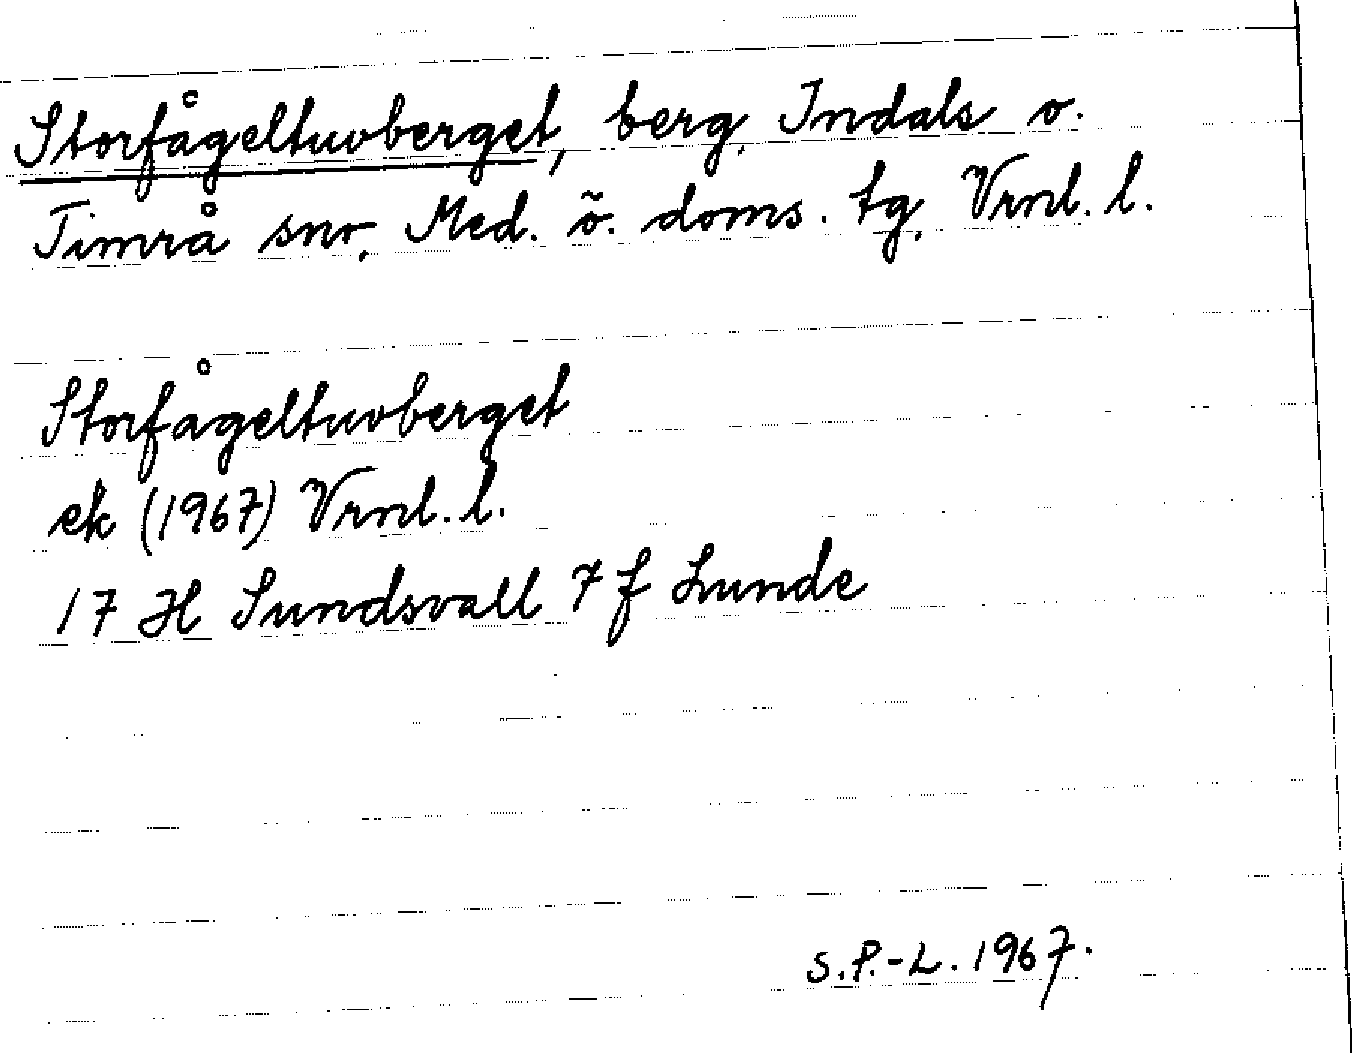 Storfågeltuvberget, berg, Indals o.
Timrå snr, Med. ö. doms. tg, Vrnl. l.
Storfågeltuvberget
ek (1967) Vrnl. l.
17 H Sundsvall 7 f Lunde
S.P.-L. 1967.